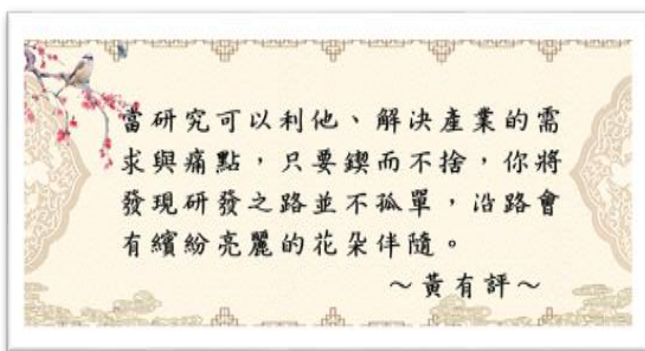 當研究可以利他、解決產業的需
求與痛點，只要鍥而不捨，你將
發現研發之路並不孤單，沿路會
有繽紛亮麗的花朵伴隨。
～黃有評～